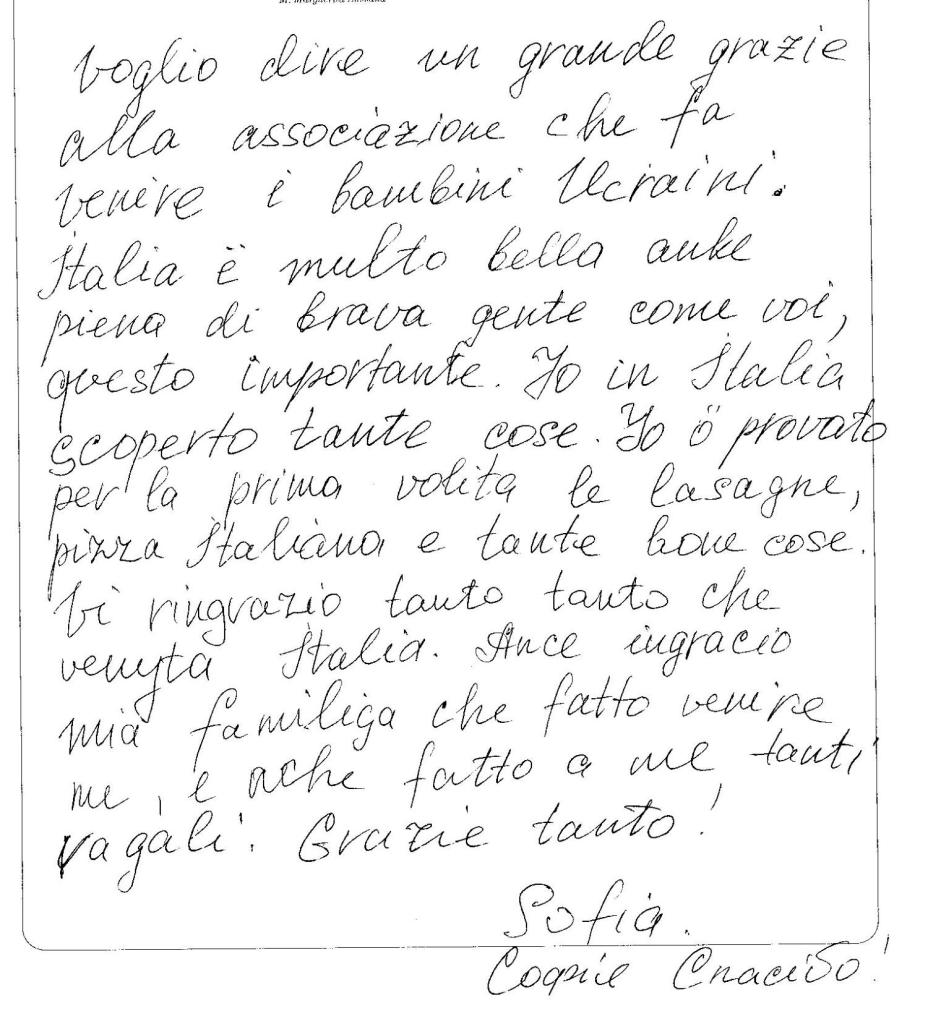 voglio dire un grande grazie
alla associazione che fa
venire i bambini Ucraini.
Italia ë multo bella anke
piena di brava gente come voi,
questo importante. Io in Italia
scoperto tante cose. Io ö provato
per la prima volita le lasagne,
pizza Italiana e tante bone cose.
Vi ringrazio tanto tanto che
venyta Italia. Ance ingracio
mia familiga che fatto venire
me, e ache fatto a me tanti
ragali. Grazie tanto!
Sofia.
Софіє Спасибо!